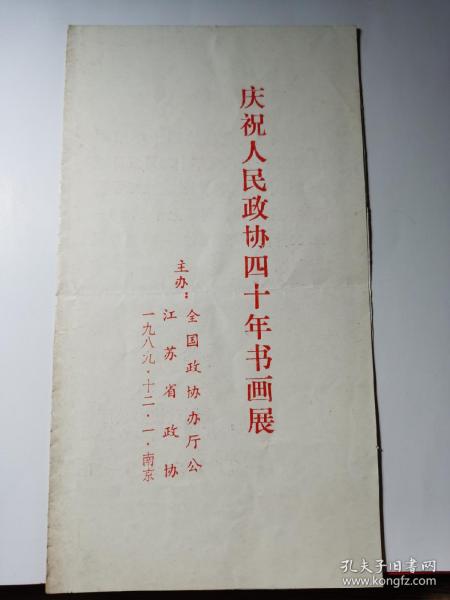 庆祝人民政协四十年书画展
主办：全国政协办厅公
江苏省政协
一九八九·十二·一·南京
孔夫子旧书网
www.kongfz.com